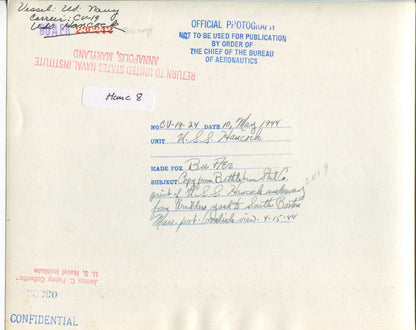 Vessel: U.S. Navy
Carrier: CV-19
USS Hancock
OFFICIAL PHOTOGRAPH
NOT TO BE USED FOR PUBLICATION
BY ORDER OF
THE CHIEF OF THE BUREAU
OF AERONAUTICS
RETURN TO UNITED STATES NAVAL INSTITUTE
ANNAPOLIS, MARYLAND
Hanc 8
NO. CV-19-24 DATE 10, May 1944
UNIT U.S.S. Hancock
MADE FOR Bu Aer
SUBJECT Copy from Bethlehem Stl. Co.
print of U.S.S. Hancock underway CV19
from builders yard to South Boston
Mass. port broadside view. 4-15-44
James C. Fahey Collection
U. S. Naval Institute
CONFIDENTIAL